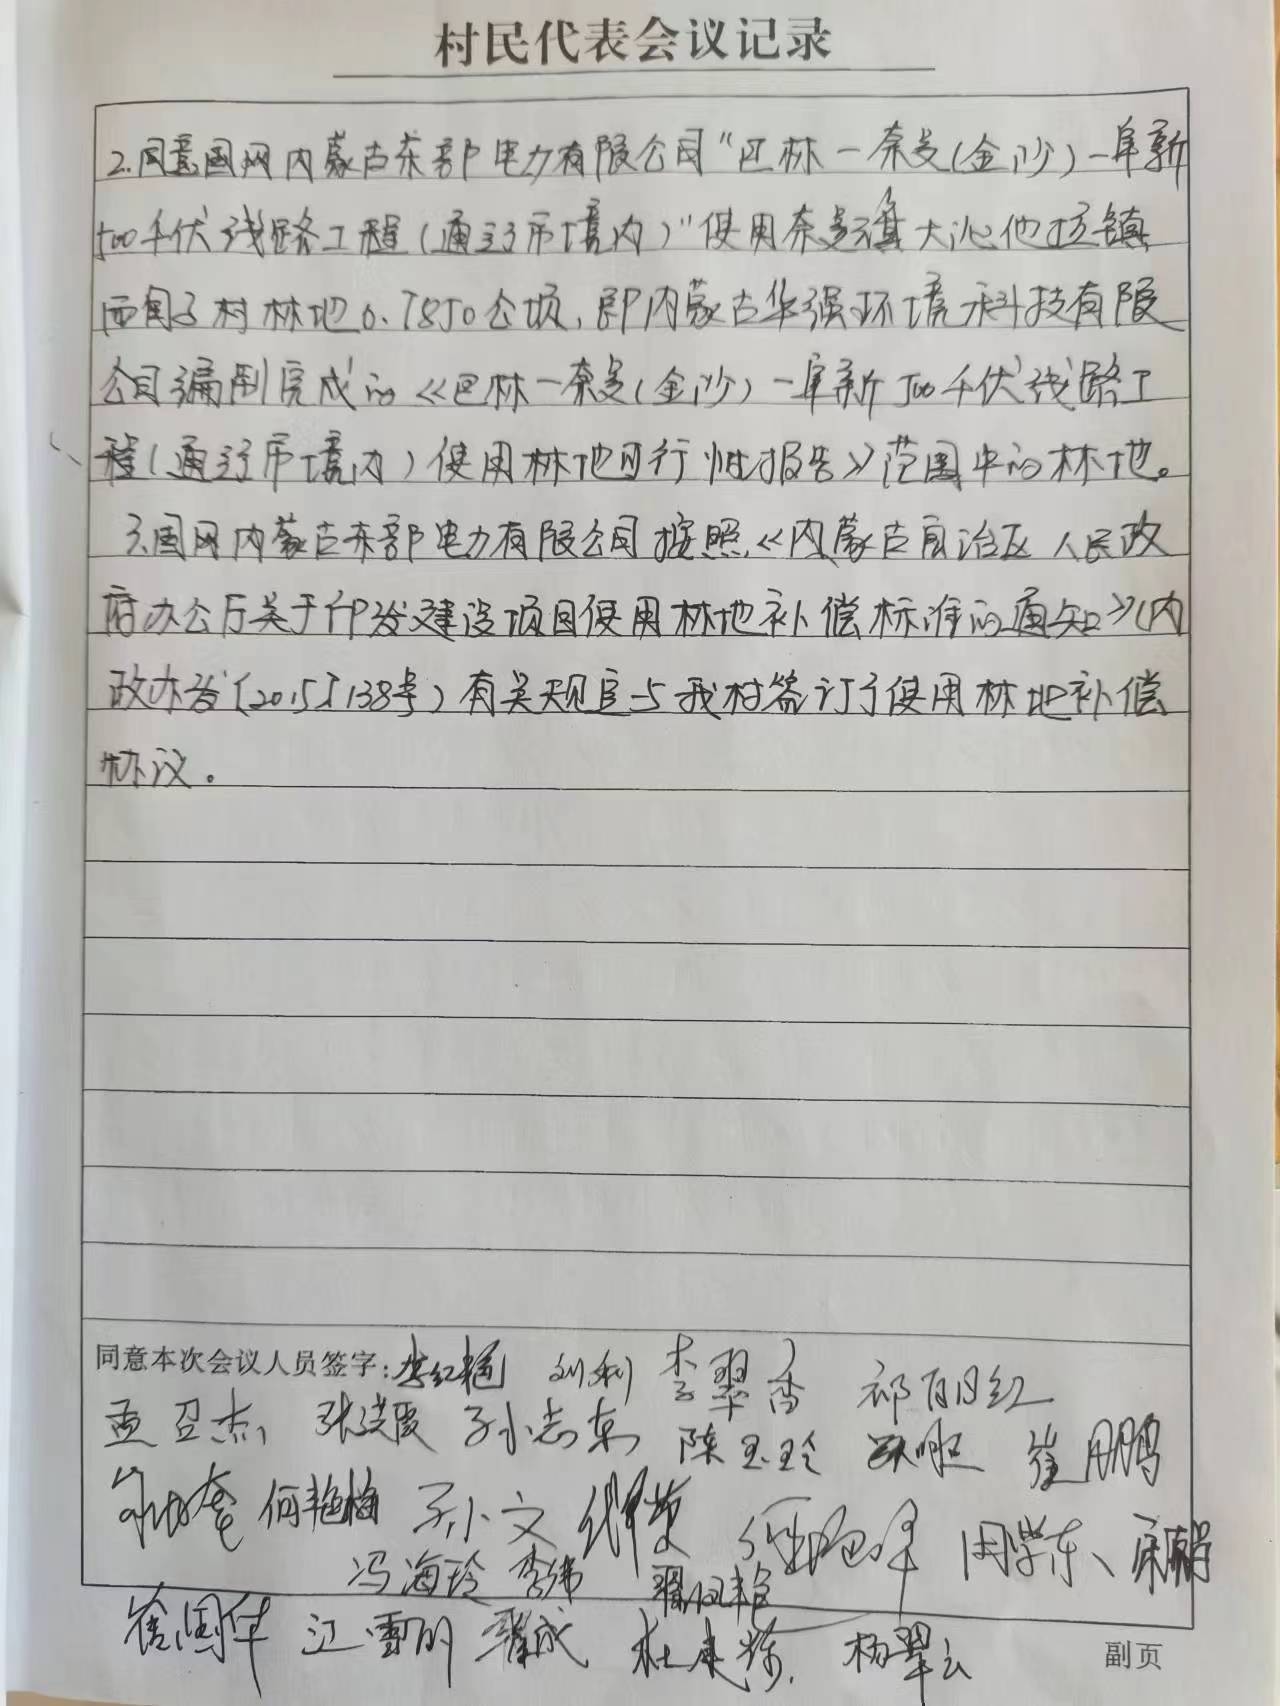 村民代表会议记录
2.同意国网内蒙古东部电力有限公司"巴林一奈曼(金沙)一阜新
500千伏线路工程(通辽市境内)"使用奈曼旗大沁他拉镇
西甸子村林地0.7850公顷,即内蒙古华强环境科技有限
公司编制完成的《巴林一奈曼(金沙)一阜新500千伏线路工
程(通辽市境内)使用林地可行性报告》范围中的林地。
3.国网内蒙古东部电力有限公司按照《内蒙古自治区人民政
府办公厅关于印发建设项目使用林地补偿标准的通知》(内
政办发〔2015〕138号)有关规定与我村签订了使用林地补偿
协议。
同意本次会议人员签字:李红艳 刘利 李翠香 祁明红
孟召杰 孙志东 陈玉玲 崔鹏
何艳梅 孙文 周学东、
冯海玲 李伟
崔国华 江雪明 杨翠云
副页